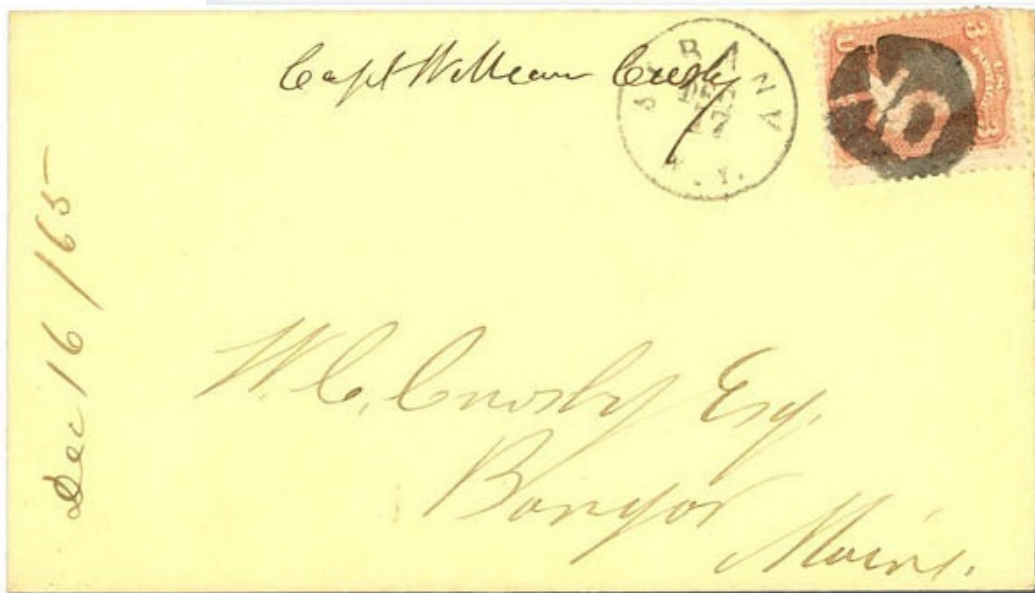 Capt William Crosby
ALBANY
DEC
N.Y.
U 3
3
Dec 16 /65
W. C. Crosby Esq.
Bangor
Maine.